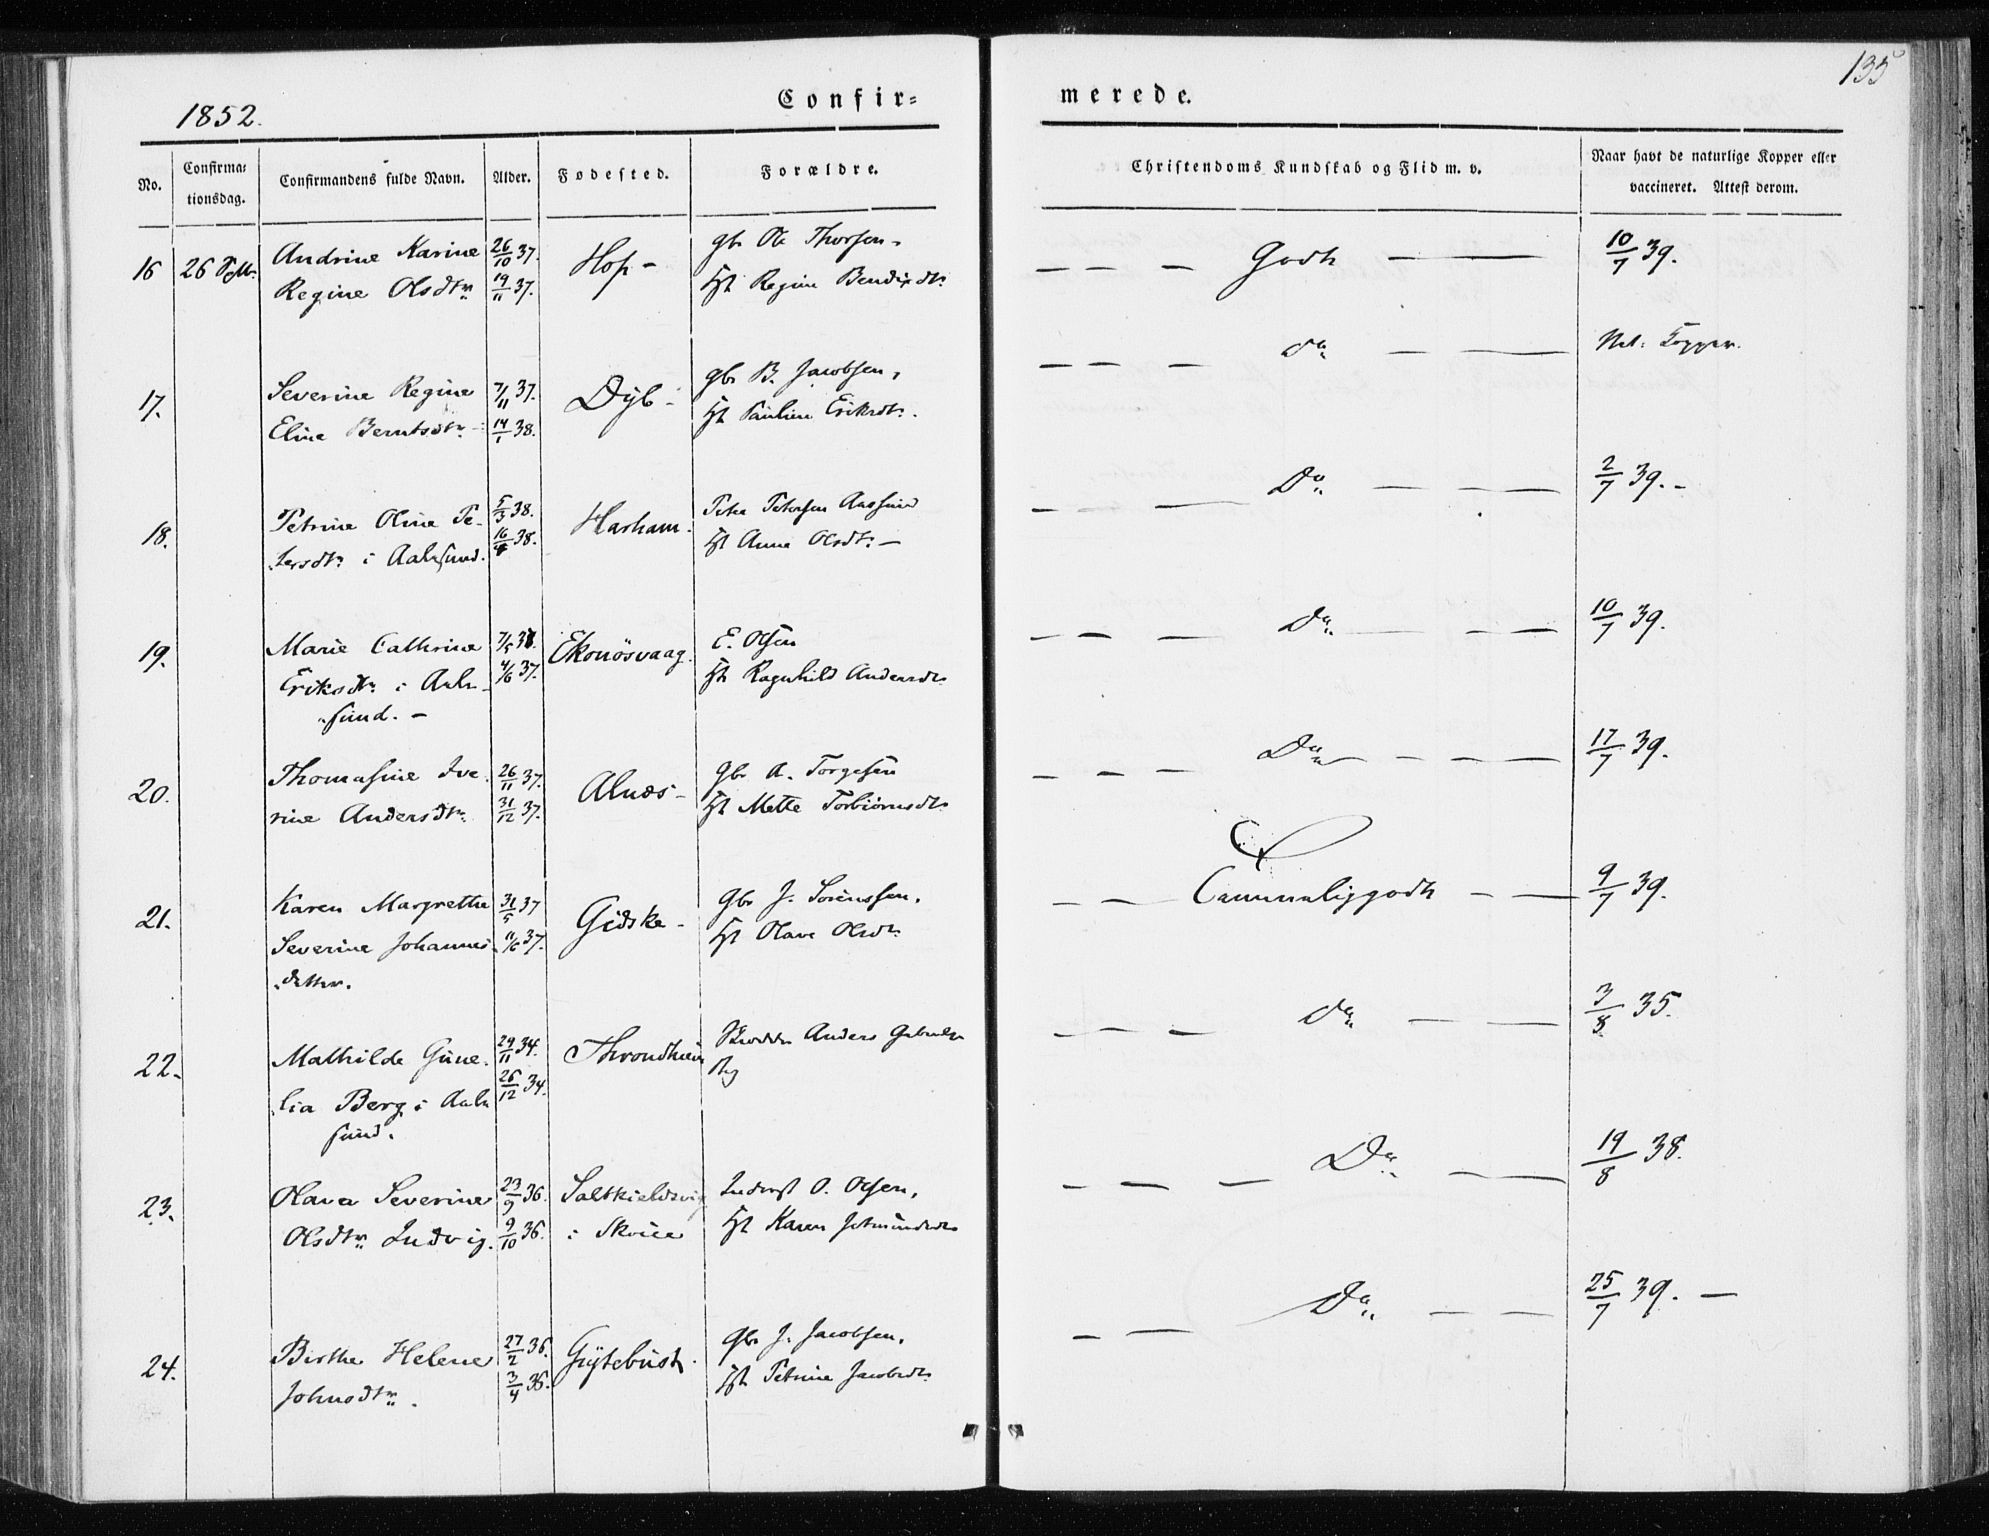 135
1852.
Confir=
merede.
No.
Confirma=
tionsdag.
Confirmandens fulde Navn.
Alder.
Fødested.
Forældre.
Christendoms Kundskab og Flid m. v.
Naar havt de naturlige Kopper eller
vaccineret. Attest derom.
16
26
Andrine Karine
Regine Olsdtr
26/10 37.
19/11 37.
Hof -
gbr Ole Thorsen -
Regine Bendixdtr
— — — Godt — —
10/7 39.
17.
Severine Regine
Eline Berntsdtr -
7/11 37.
14/1 38.
Dyb -
gbr B. Jacobsen,
Pauline Eriksdtr.
— — — do — —
Nat. Kopper.
18.
Petrine Oline Pe-
tersdtr i Aalesund.
5/3 38.
16/4 38.
Harham.
Peter Petersen
Anne Olsdtr. —
— — — Do — —
2/7 39. -
19.
Marie Cathrine
Eriksdtr i Aale-
sund. —
7/5 37.
4/6 37.
Ekonösvaag.
E. Olsen
Ragnhild Andersdtr
— — — do — —
10/7 39.
20.
Thomasine Ive-
rine Andersdtr.
26/11 37.
31/12 37.
Alnæs -
gbr A. Torgesen
Mette Torbiörnsdtr
— — — Do — —
17/7 39.
21.
Karen Margrethe
Severine Johannes-
datter.
31/5 37
11/6 37.
Gidske -
gbr J. Sörenssen,
Olave Olsdtr
— — Temmeliggodt — —
9/7 39.
22.
Mathilde Gune-
lia Berg i Aale
sund.
29/11 34.
26/12 34.
Throndhiem
Anders
— — — do — —
3/8 35.
23.
Olava Severine
Olsdtr Ludvig.
23/9 36.
9/10 36.
Saltkieldsvig
i Skoue
O. Olsen,
Karen
— — — Do — —
19/8 38.
24.
Birthe Helene
Johnsdtr.
27/2 36.
3/4 36.
Gytebust.
gbr J. Jacobsen,
Petrine Jacobsdtr
— — Do — —
25/7 39. —